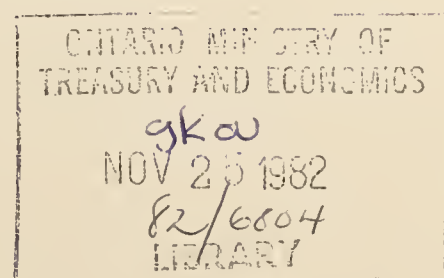 ONTARIO MINISTRY OF
TREASURY AND ECONOMICS
NOV 25 1982
82/6804
LIBRARY